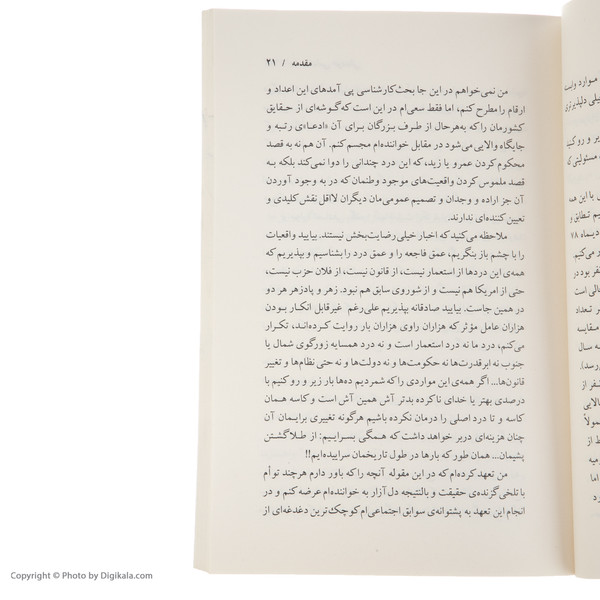 مقدمه / ۲۱
من نمی‌خواهم در این جا بحث کارشناسی پی آمدهای این اعداد و
ارقام را مطرح کنم، اما فقط سعی‌ام در این است که گوشه‌ای از حقایق
کشورمان را که به‌هرحال از طرف بزرگان برای آن «ادعا»ی رتبه و
جایگاه والایی می‌شود در مقابل خواننده‌ام مجسم کنم. آن هم نه به قصد
محکوم کردن عمرو یا زید، که این درد چندانی را دوا نمی‌کند بلکه به
قصد ملموس کردن واقعیت‌های موجود وطنمان که در به وجود آوردن
آن جز اراده و وجدان و تصمیم عمومی‌مان دیگران لااقل نقش کلیدی و
تعیین کننده‌ای ندارند.
ملاحظه می‌کنید که اخبار خیلی رضایت‌بخش نیستند. بیایید واقعیات
را با چشم باز بنگریم، عمق فاجعه را و درد را بشناسیم و بپذیریم که
همه‌ی این دردها از استعمار نیست، از قانون نیست، از فلان حزب نیست،
حتی از امریکا هم نیست و از شوروی سابق هم نبود. زهر و پادزهر هر دو
در همین جاست. بیایید صادقانه بپذیریم علی‌رغم غیرقابل انکار بودن
هزاران عامل مؤثر که هزاران راوی هزاران بار روایت کرده‌اند، تکرار
می‌کنم، درد ما نه درد استعمار است و نه درد همسایه زورگوی شمال یا
جنوب نه ابرقدرت‌ها نه حکومت‌ها و نه دولت‌ها و نه حتی نظام‌ها و تغییر
قانون‌ها... اگر همه‌ی این مواردی را که شمردیم ده‌ها بار زیر و رو کنیم با
درصدی بهتر یا خدای ناکرده بدتر آش همین آش است و کاسه همان
کاسه و تا درد اصلی را درمان نکرده باشیم هرگونه تغییری برایمان آن
چنان هزینه‌ای دربر خواهد داشت که همگی بسراییم: از طلا گشتن
پشیمان... همان طور که بارها در طول تاریخمان سراییده‌ایم!!
من تعهد کرده‌ام که در این مقوله آنچه را که باور دارم هرچند توأم
با تلخی گزنده‌ی حقیقت و بالنتیجه دل آزار به خواننده‌ام عرضه کنم و در
انجام این تعهد به پشتوانه‌ی سوابق اجتماعی‌ام کوچک‌ترین دغدغه‌ای از
موارد وابسته
خیلی دلپذیرتری
زیر و رو کنید
مسئولیتی که
با این همه
تطابق و
دی‌ماه ۷۸
می‌کنیم
نفر بود در
حالی است
تعداد
مقایسه
سال
از
اما
Copyright © Photo by Digikala.com